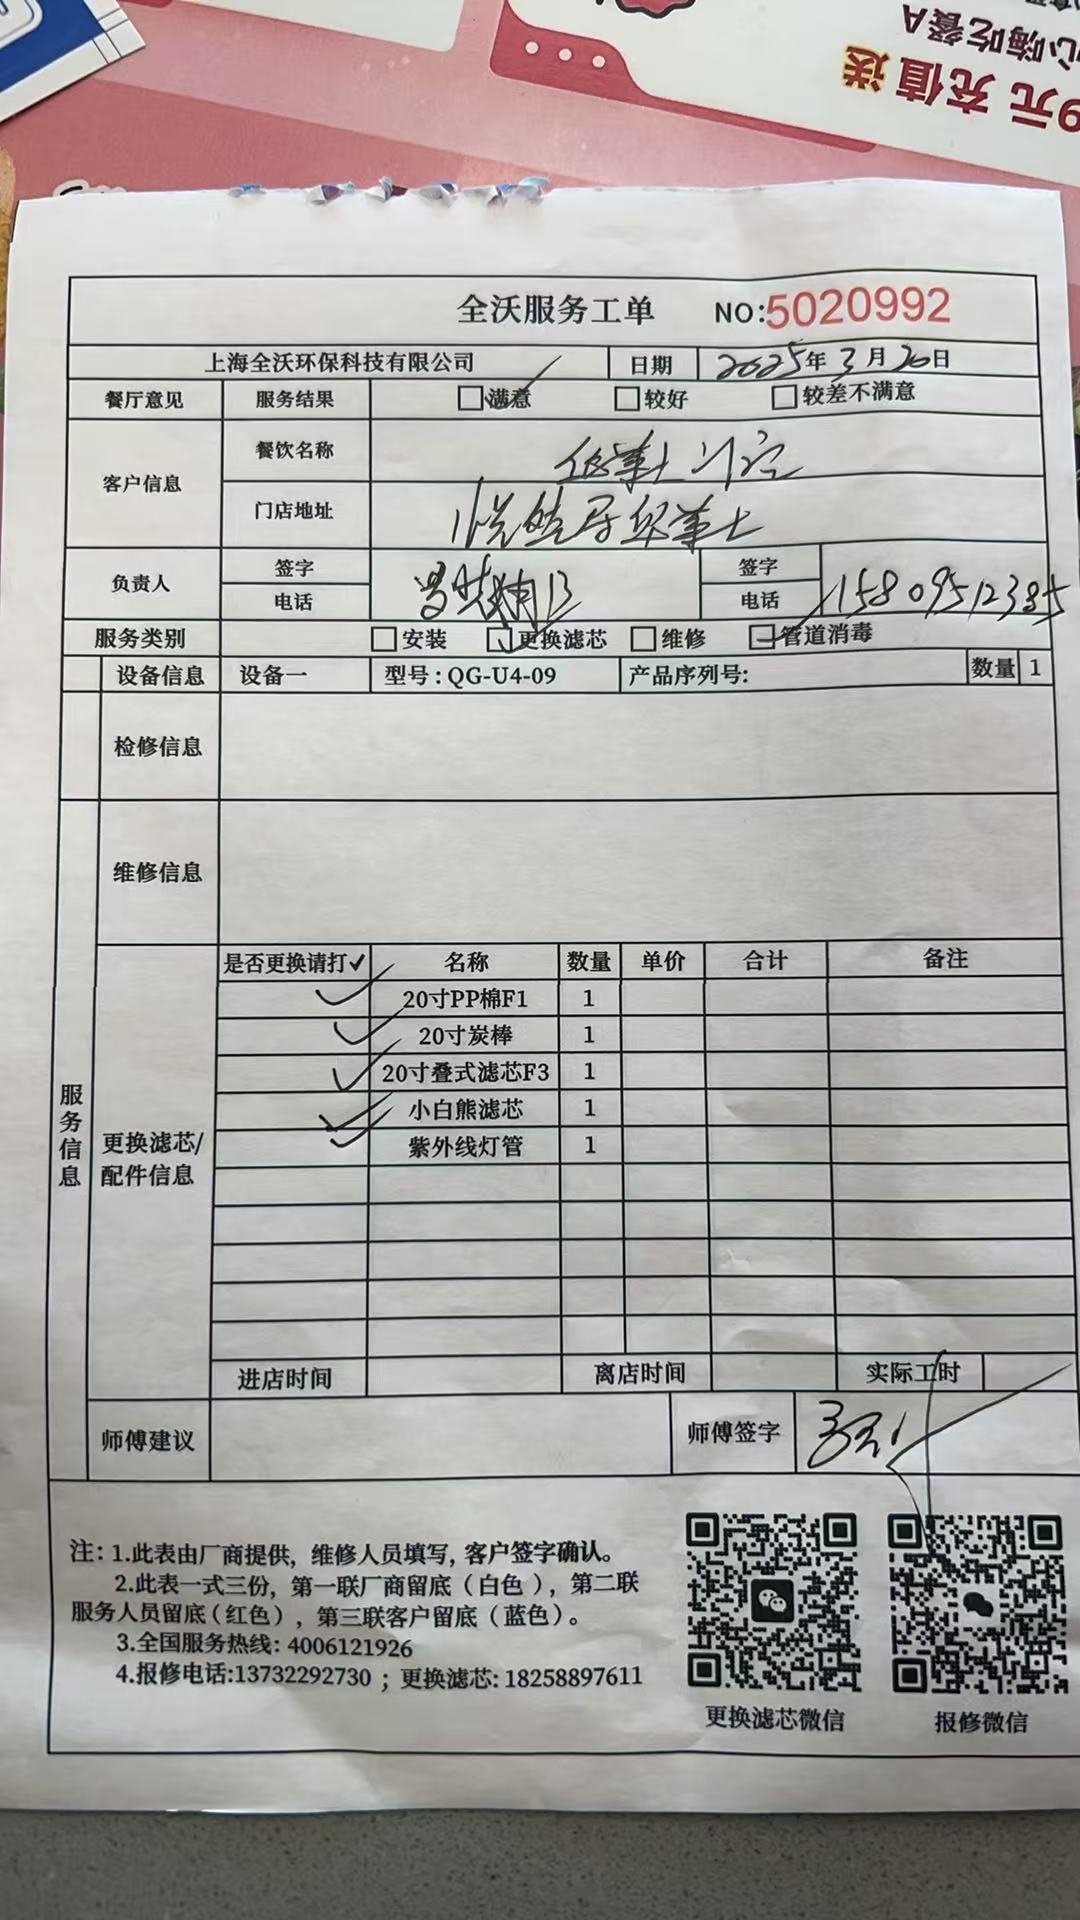 心嗨吃餐A
9元 充值 送
全沃服务工单 NO:5020992
上海全沃环保科技有限公司 日期 2025年3月20日
餐厅意见 服务结果 满意 较好 较差不满意
客户信息 餐饮名称
门店地址
负责人 签字 签字
电话 电话 15809512385
服务类别 安装 更换滤芯 维修 管道消毒
设备信息 设备一 型号:QG-U4-09 产品序列号: 数量 1
检修信息
维修信息
是否更换请打✓ 名称 数量 单价 合计 备注
✓ 20寸PP棉F1 1
✓ 20寸炭棒 1
✓ 20寸叠式滤芯F3 1
✓ 小白熊滤芯 1
✓ 紫外线灯管 1
服务信息
更换滤芯/
配件信息
进店时间 离店时间 实际工时
师傅建议 师傅签字
注: 1.此表由厂商提供, 维修人员填写, 客户签字确认。
2.此表一式三份, 第一联厂商留底 (白色), 第二联
服务人员留底 (红色), 第三联客户留底 (蓝色)。
3.全国服务热线: 4006121926
4.报修电话:13732292730 ; 更换滤芯: 18258897611
更换滤芯微信 报修微信